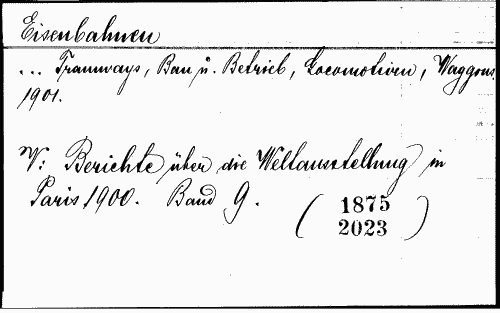 Eisenbahnen
... Tramways, Bau u. Betrieb, Locomotiven, Waggons.
1901.
V: Berichte über die Weltausstellung in
Paris 1900. Band 9. (1875
2023)